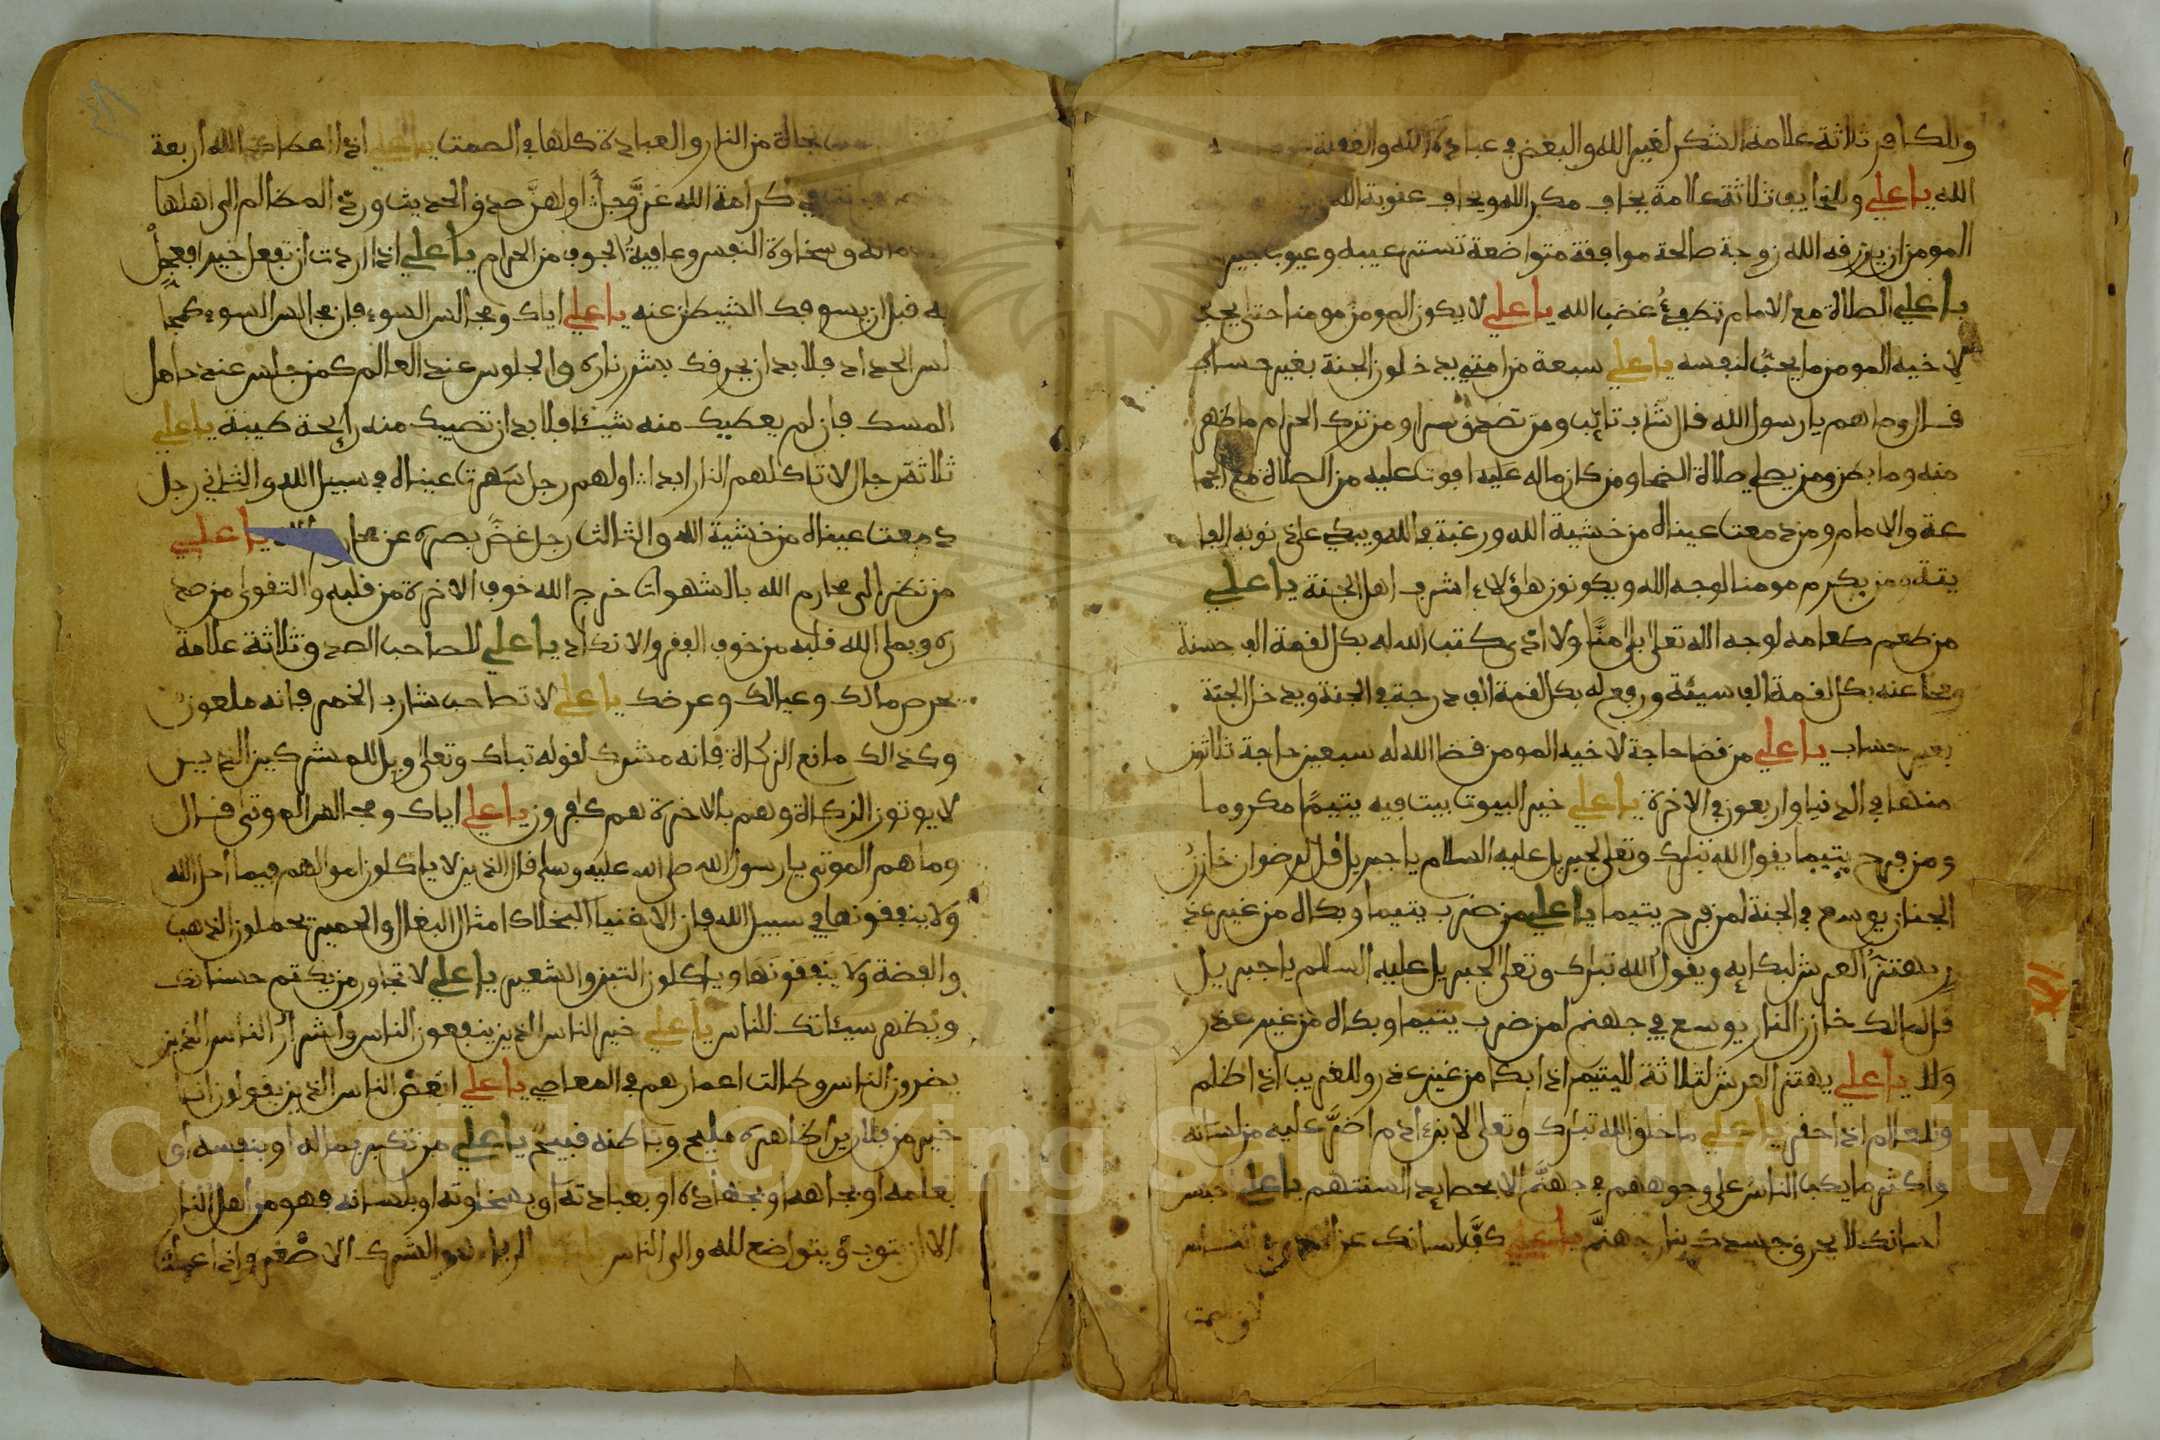 وللكافر ثلاثة علامة الشكر لغير الله والبغض في عبادة الله والغفلة
الله يا علي وللخايف ثلاثة علامة يخاف مكر الله ويخاف عقوبة الله
المومن ان يرزقه الله زوجة صالحة موافقة متواضعة تستر عيبه وعيوب
يا علي الصلاة مع الامام تطفئ غضب الله يا علي لا يكون المومن مومنا حتى يحب
لاخيه المومن ما يحب لنفسه يا علي سبعة من امتي يدخلون الجنة بغير حساب
قال وما هم يا رسول الله قال شاب تائب ومن تصدق سرا ومن ترك الحرام ما ظهر
منه وما بطن ومن يصلي صلاة الضحا ومن كان ماله عليه افوت عليه من الصلاة مع الجما
عة والامام ومن دمعت عيناه من خشية الله ورغبة في الله ويبكي على ذنوبه
ومن يكرم مومنا لوجه الله ويكونون هؤلاء اشرف اهل الجنة يا علي
من طعم طعامه لوجه الله تعلى بلا منا ولا اذى يكتب الله له بكل لقمة الف حسنة
ومحا عنه بكل لقمة الف سيئة ورفع له بكل لقمة الف درجة في الجنة ويدخل الجنة
بغير حساب يا علي من قضا حاجة لاخيه المومن قضا الله له سبعين حاجة ثلاثون
منها في الدنيا واربعون في الاخرة يا علي خير البيوت بيت فيه يتيما مكروما
ومن فرح يتيما يقول الله تبارك وتعلى لجبريل عليه السلام يا جبريل قل لرضوان خازن
الجنان يوسع في الجنة لمن فرح يتيما يا علي من ضرب يتيما وبكاه من غير عذ
ر يهتز العرش لبكايه ويقول الله تبارك وتعلى لجبريل عليه السلام يا جبريل
قل لمالك خازن النار يوسع في جهنم لمن ضرب يتيما وبكاه من غير عذر
ولا يا علي يهتز العرش لثلاثة لليتيم اذا بكا من غير عذر وللغريب اذا ظلم
وللعالم اذا احقر يا علي ما خلق الله تبارك وتعلى لابن ءادم اضر عليه من لسانه
واكثر ما يكب الناس على وجوههم في جهنم الا بحصايد السنتهم يا علي
لسانك لا يحرق جسدك بنار جهنم يا علي كف لسانك عن
نجاة من النار والعبادة كلها في الصمت يا علي اذا اعطاك الله اربعة
في كرامة الله عز وجل اولهن صدق الحديث ورد المظالم الى اهلها
وسخاوة النفس وعافية الجوف من الحرام يا علي اذا اردت ان تفعل خيرا فعجل
به قبل ان يسوفك الشيطان عنه يا علي اياك ومجالس السوء فان مجالس السوء كمجا
لس الحداد فلا بد ان يحرقك بشرر ناره والجلوس عند العالم كمن جلس عند حامل
المسك فان لم يعطيك منه شيئا فلا بد ان تصيبك منه رائحة طيبة يا علي
ثلاثة رجال لا تاكلهم النار ابدا اولهم رجل سهرت عيناه في سبيل الله والثاني رجل
دمعت عيناه من خشية الله والثالث رجل غض بصره عن محارم الله يا علي
من نظر الى محارم الله بالشهوات خرج الله خوف الاخرة من قلبه والتقوى من صد
ره ويملى الله قلبه من خوف الفقر والانكاد يا علي للصاحب الصدق ثلاثة علامة
يحرص مالك وعيالك وعرضك يا علي لا تصاحب شارب الخمر فانه ملعون
وكذالك مانع الزكاة فانه مشرك لقوله تبارك وتعلى ويل للمشركين الذين
لا يوتون الزكاة وهم بالاخرة هم كافرون يا علي اياك ومجالس الموتى قال
وما هم الموتى يا رسول الله صلى الله عليه وسلم قال الذين لا ياكلون اموالهم فيما احل الله
ولا ينفقونها في سبيل الله فان الاغنيا البخلا امثال البغال والحمير يحملون الذهب
والفضة ولا ينفقونها وياكلون التبن والشعير يا علي لا تجاور من يكتم حسناتك
ويظهر سيئاتك للناس يا علي خير الناس الذين ينفعون الناس واشر الناس الذين
يضرون الناس وطالت اعمارهم في المعاصي يا علي ابغض الناس الذين يقولون انا
خير من فلان ظاهره مليح وباطنه قبيح يا علي من تكبر بماله او بنفسه او
بعلمه او بجاهه او بجهاده او بعبادته او بسخاوته او بلسانه فهو من اهل النار
الا ان يتوب ويتواضع لله والى الناس الرياء هو الشرك الاصغر